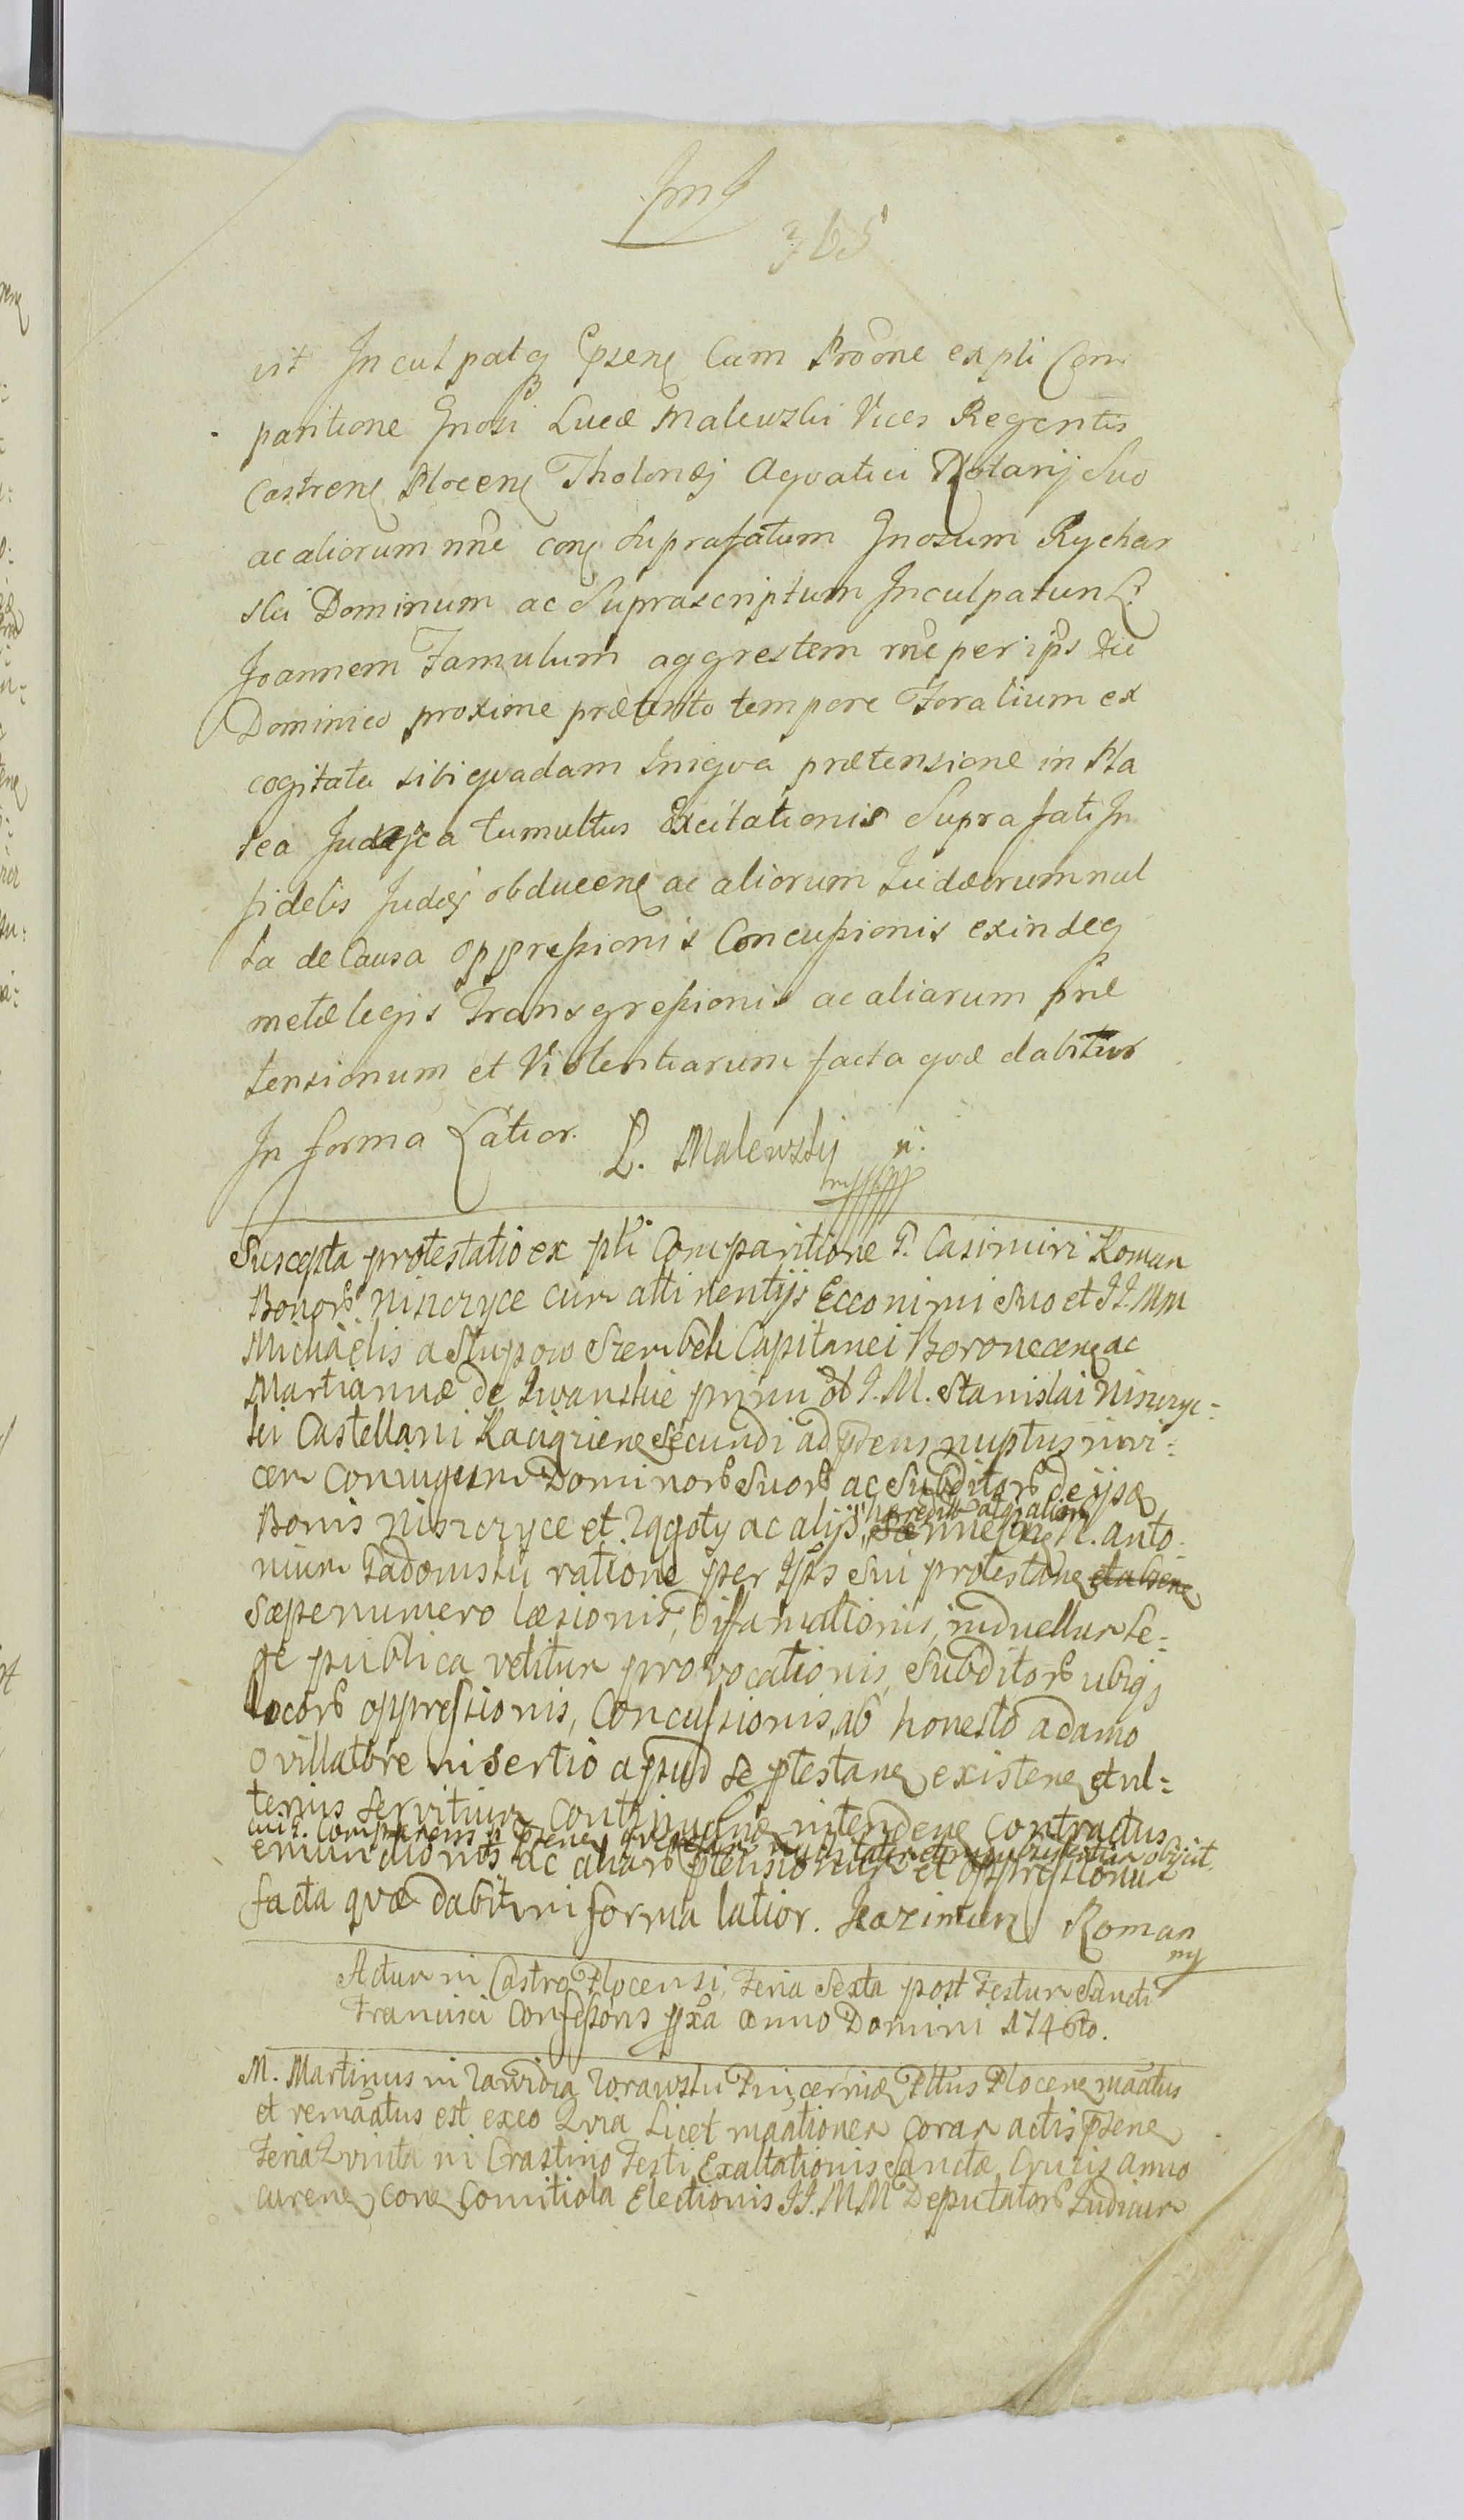 365
vit Inculpatq Psenę Cum Proōne ex pli Com
paritione Gnosi Lucæ Malewski Vices Regentis
Castrenę Plocenę Tholonęj Aqvatici Notarij Suo
ac aliorum nn̄e conę Suprafatum Gnosum Rychar
ski Dominum ac Suprascriptum Inculpatum L:
Joannem Famulum aggrestem rn̄e per ip̄s die
Dominico proxime præterito tempore Foralium ex
cogitata sibi qvadam Iniqva prætensione in Pla
tea Judaica tumultus Excitationis Suprafati In
fidelis Judęj obducenę ac aliorum Iudæorum nul
la de Causa Oppressionis Concussionis exindeq
metælegis Transgressionis ac aliarum præ
tensionum et Violentiarum facta qvæ dabitur
In forma Latior. L. Malewskij
mp
Suscepta protestatio ex pli Comparitione F. Casimiri Roman
Bonorꝫ Niszczyce cum attinentijs Ecconimi Suo et JJ. Mm
Michaēlis a Słupow Szembek Capitanei Boronecenę ac
Martiannæ de primi ōl J. M. Stanislai Niszczyc=
ki Castellani Raciązienę Secundi ad p̄dens nuptus invi=
cem Conjugum Dominorꝫ Suorꝫ ac Subditorꝫ de ijsdę
hæredit
Bonis Niszczyce et Zągoty ac alijs N. Anto
nium Tadomski ratione per Ip̄s Sui protestanę et absenę
Sæpenumero læsionis, Diffamationis, in duellum le=
ge publica vetitum provocationis, Subditorꝫ ubiqꝫ
locorꝫ oppressionis, Concussionis, ab honesto Adamo
Ovillatore in Sertio apud se p̄testanę existenę et ul=
terius Servitium Continuandæ intendenę Contractus
cui F. Comparens p̄senę objicit.
emundionis ac aliarꝫ p̄tensionum et oppressionum
facta qvæ dabit in forma latior. Kazimierz Roman
mp
Actum in Castro Plocensi, Feria Sexta post Festum Sancti
Francisci Confessoris p̄xa Anno Domini 1746to.
M. Martinus in Zawidz Zorawski Pincernæ Pltus Plocenę māatus
et remāatus est ex eo Qvia Licet māationem coram actis p̄senę
Feria Qvinta in Crastino Festi Exaltationis Sanctæ Crucis Anno
curenę conę Comitiola Electionis JJ. MM Deputatorꝫ Iudicum